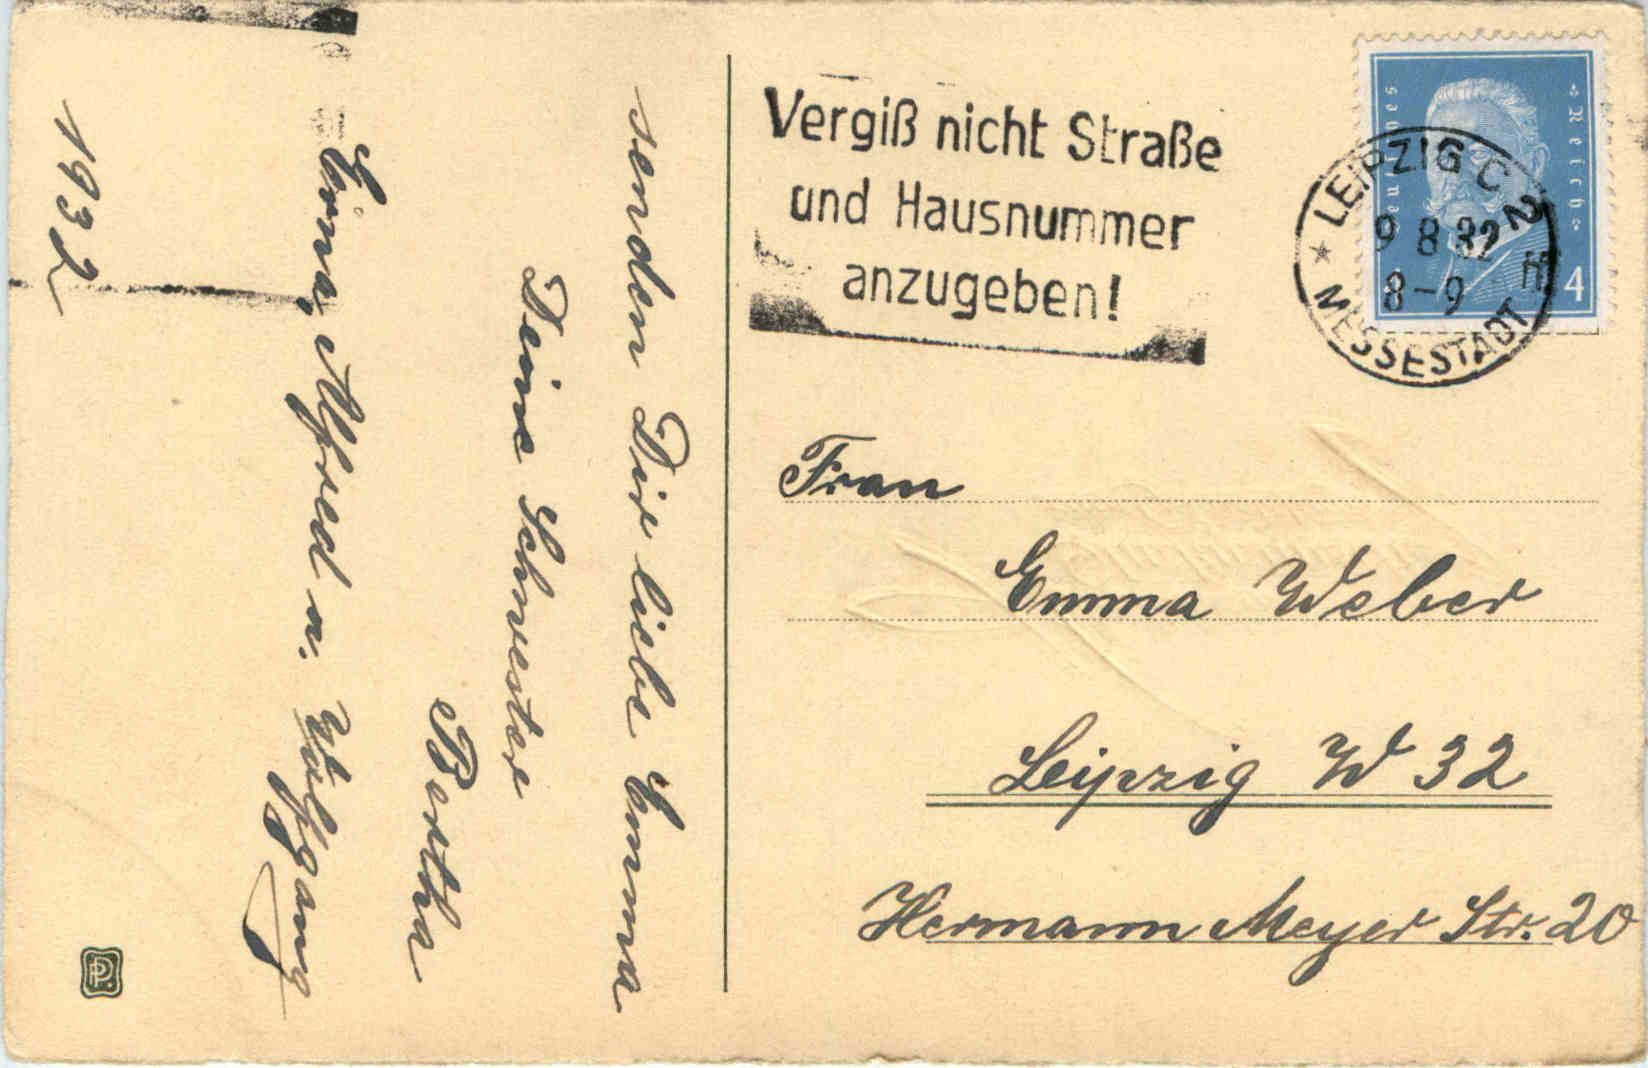 senden Dir liebe Emma
Deine Schwester
Bertha
Erna, Alfred u. Wolfgang
1932
Vergiß nicht Straße
und Hausnummer
anzugeben!
Deutsches Reich
4
LEIPZIG C 2
9 8 32
8-9
MESSESTADT
Frau
Emma Weber
Leipzig W 32
Hermann Meyer Str. 20